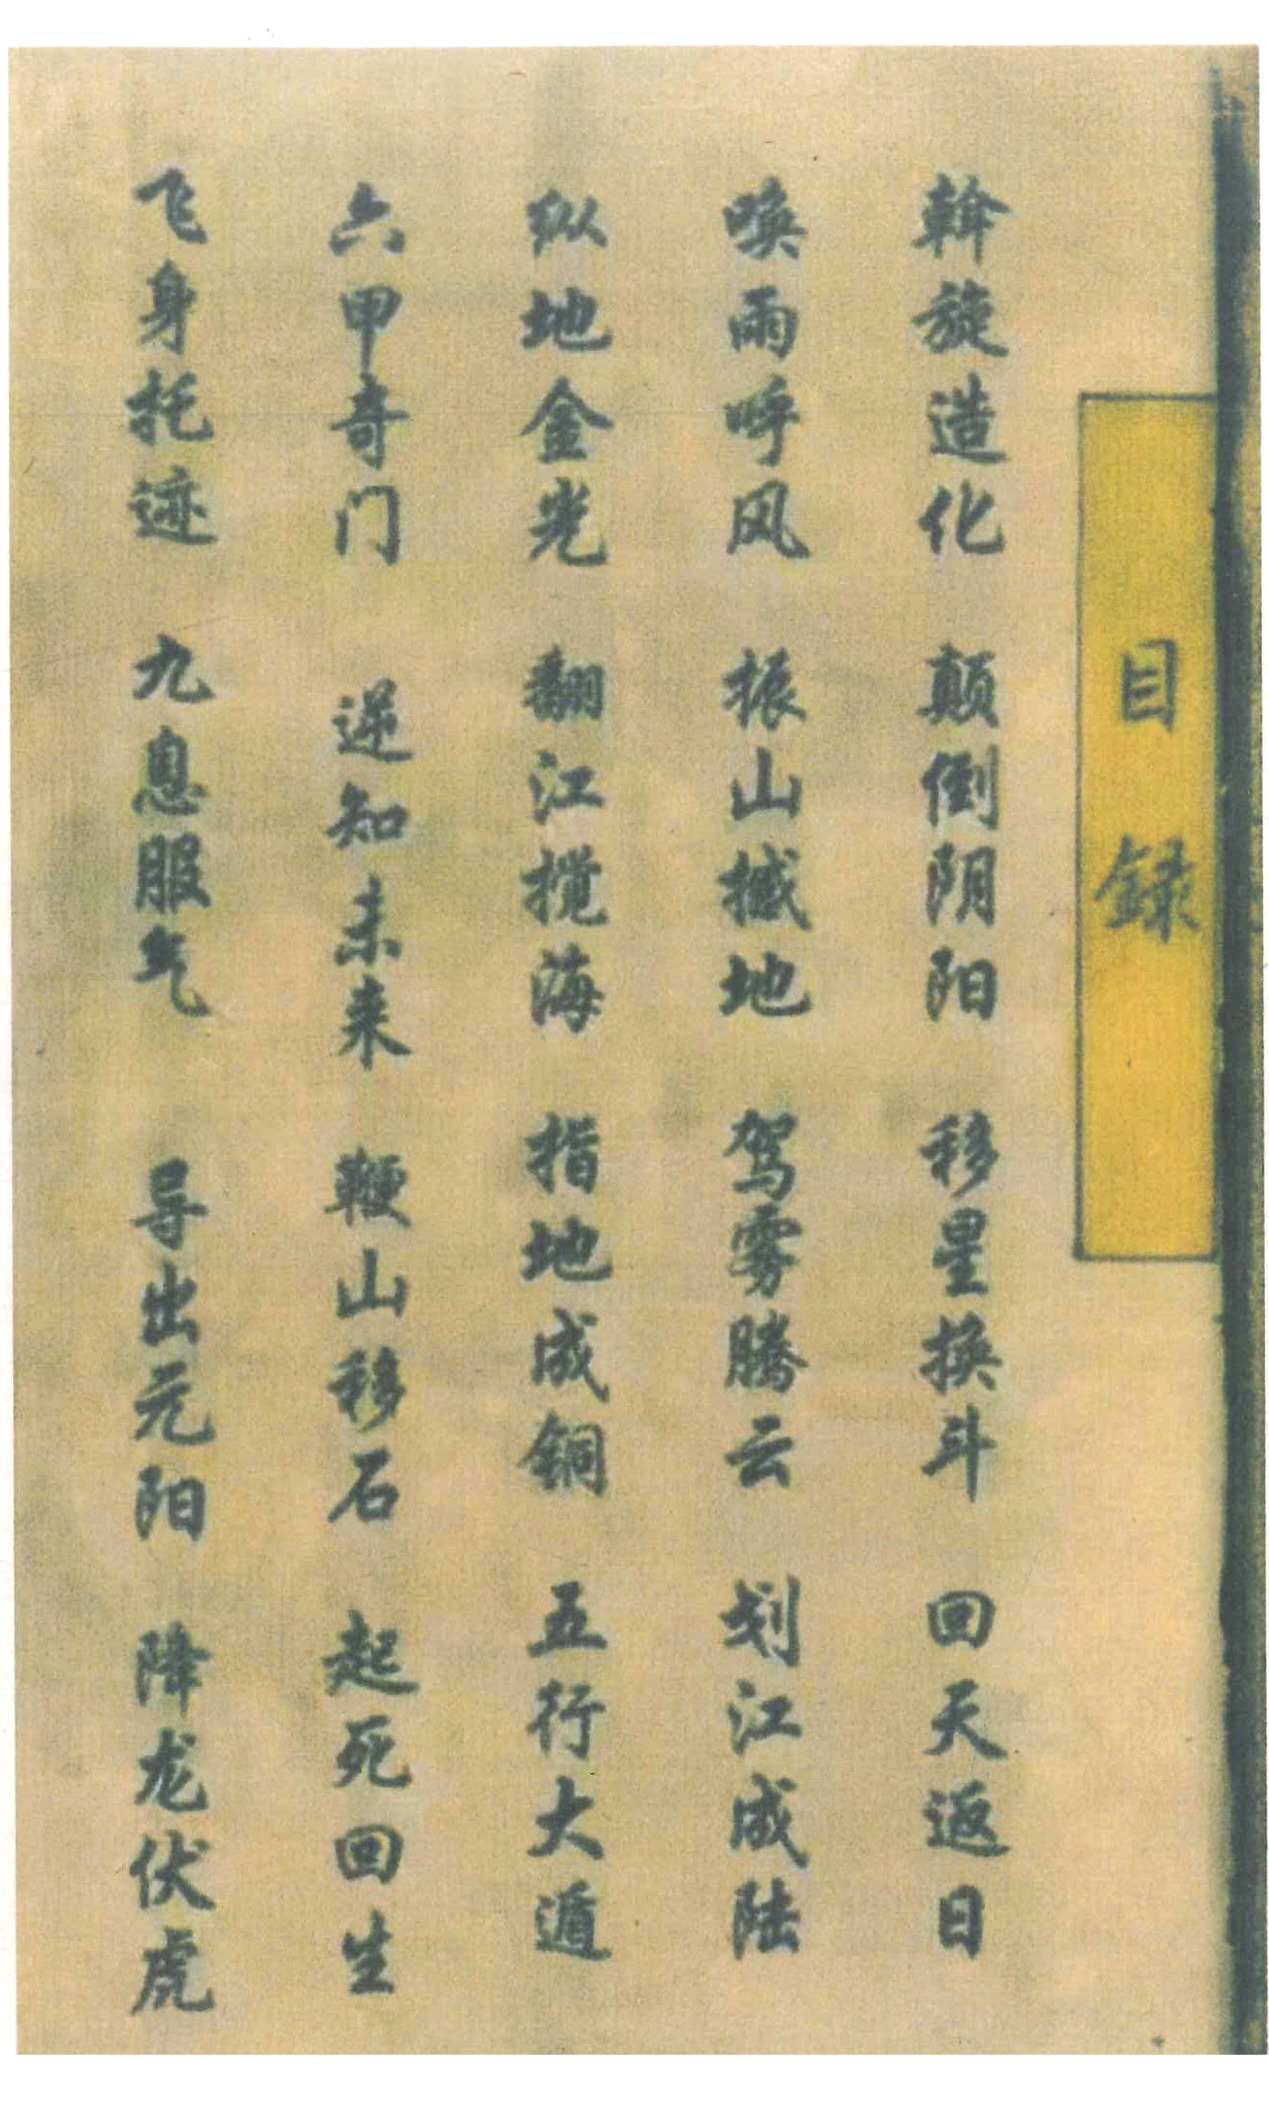 目録
斡旋造化 颠倒阴阳 移星换斗 回天返日
唤雨呼风 振山撼地 驾雾腾云 划江成陆
纵地金光 翻江搅海 指地成钢 五行大遁
六甲奇门 逆知未来 鞭山移石 起死回生
飞身托迹 九息服气 导出元阳 降龙伏虎